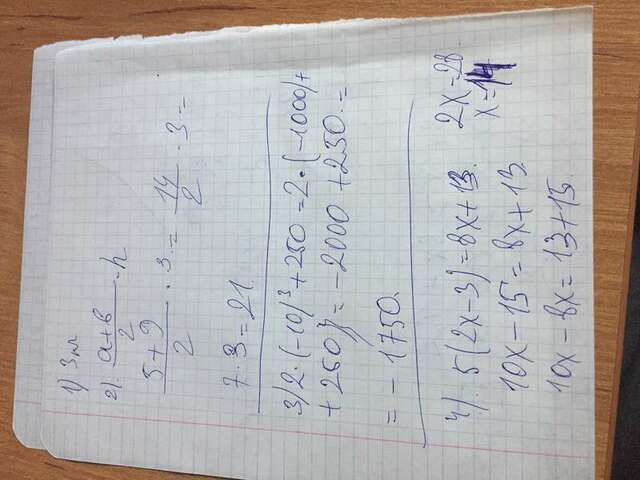 1) 3 кл
2) (a+b)/2 · h
(5+9)/2 · 3 = 14/2 · 3 =
7 · 3 = 21
3) 2·(-10)³ + 250 = 2·(-1000) +
+ 250 = -2000 + 250 =
= - 1750.
4) 5(2x-3) = 8x+13.
10x - 15 = 8x + 13
10x - 8x = 13 + 15.
2x = 28
x = 14